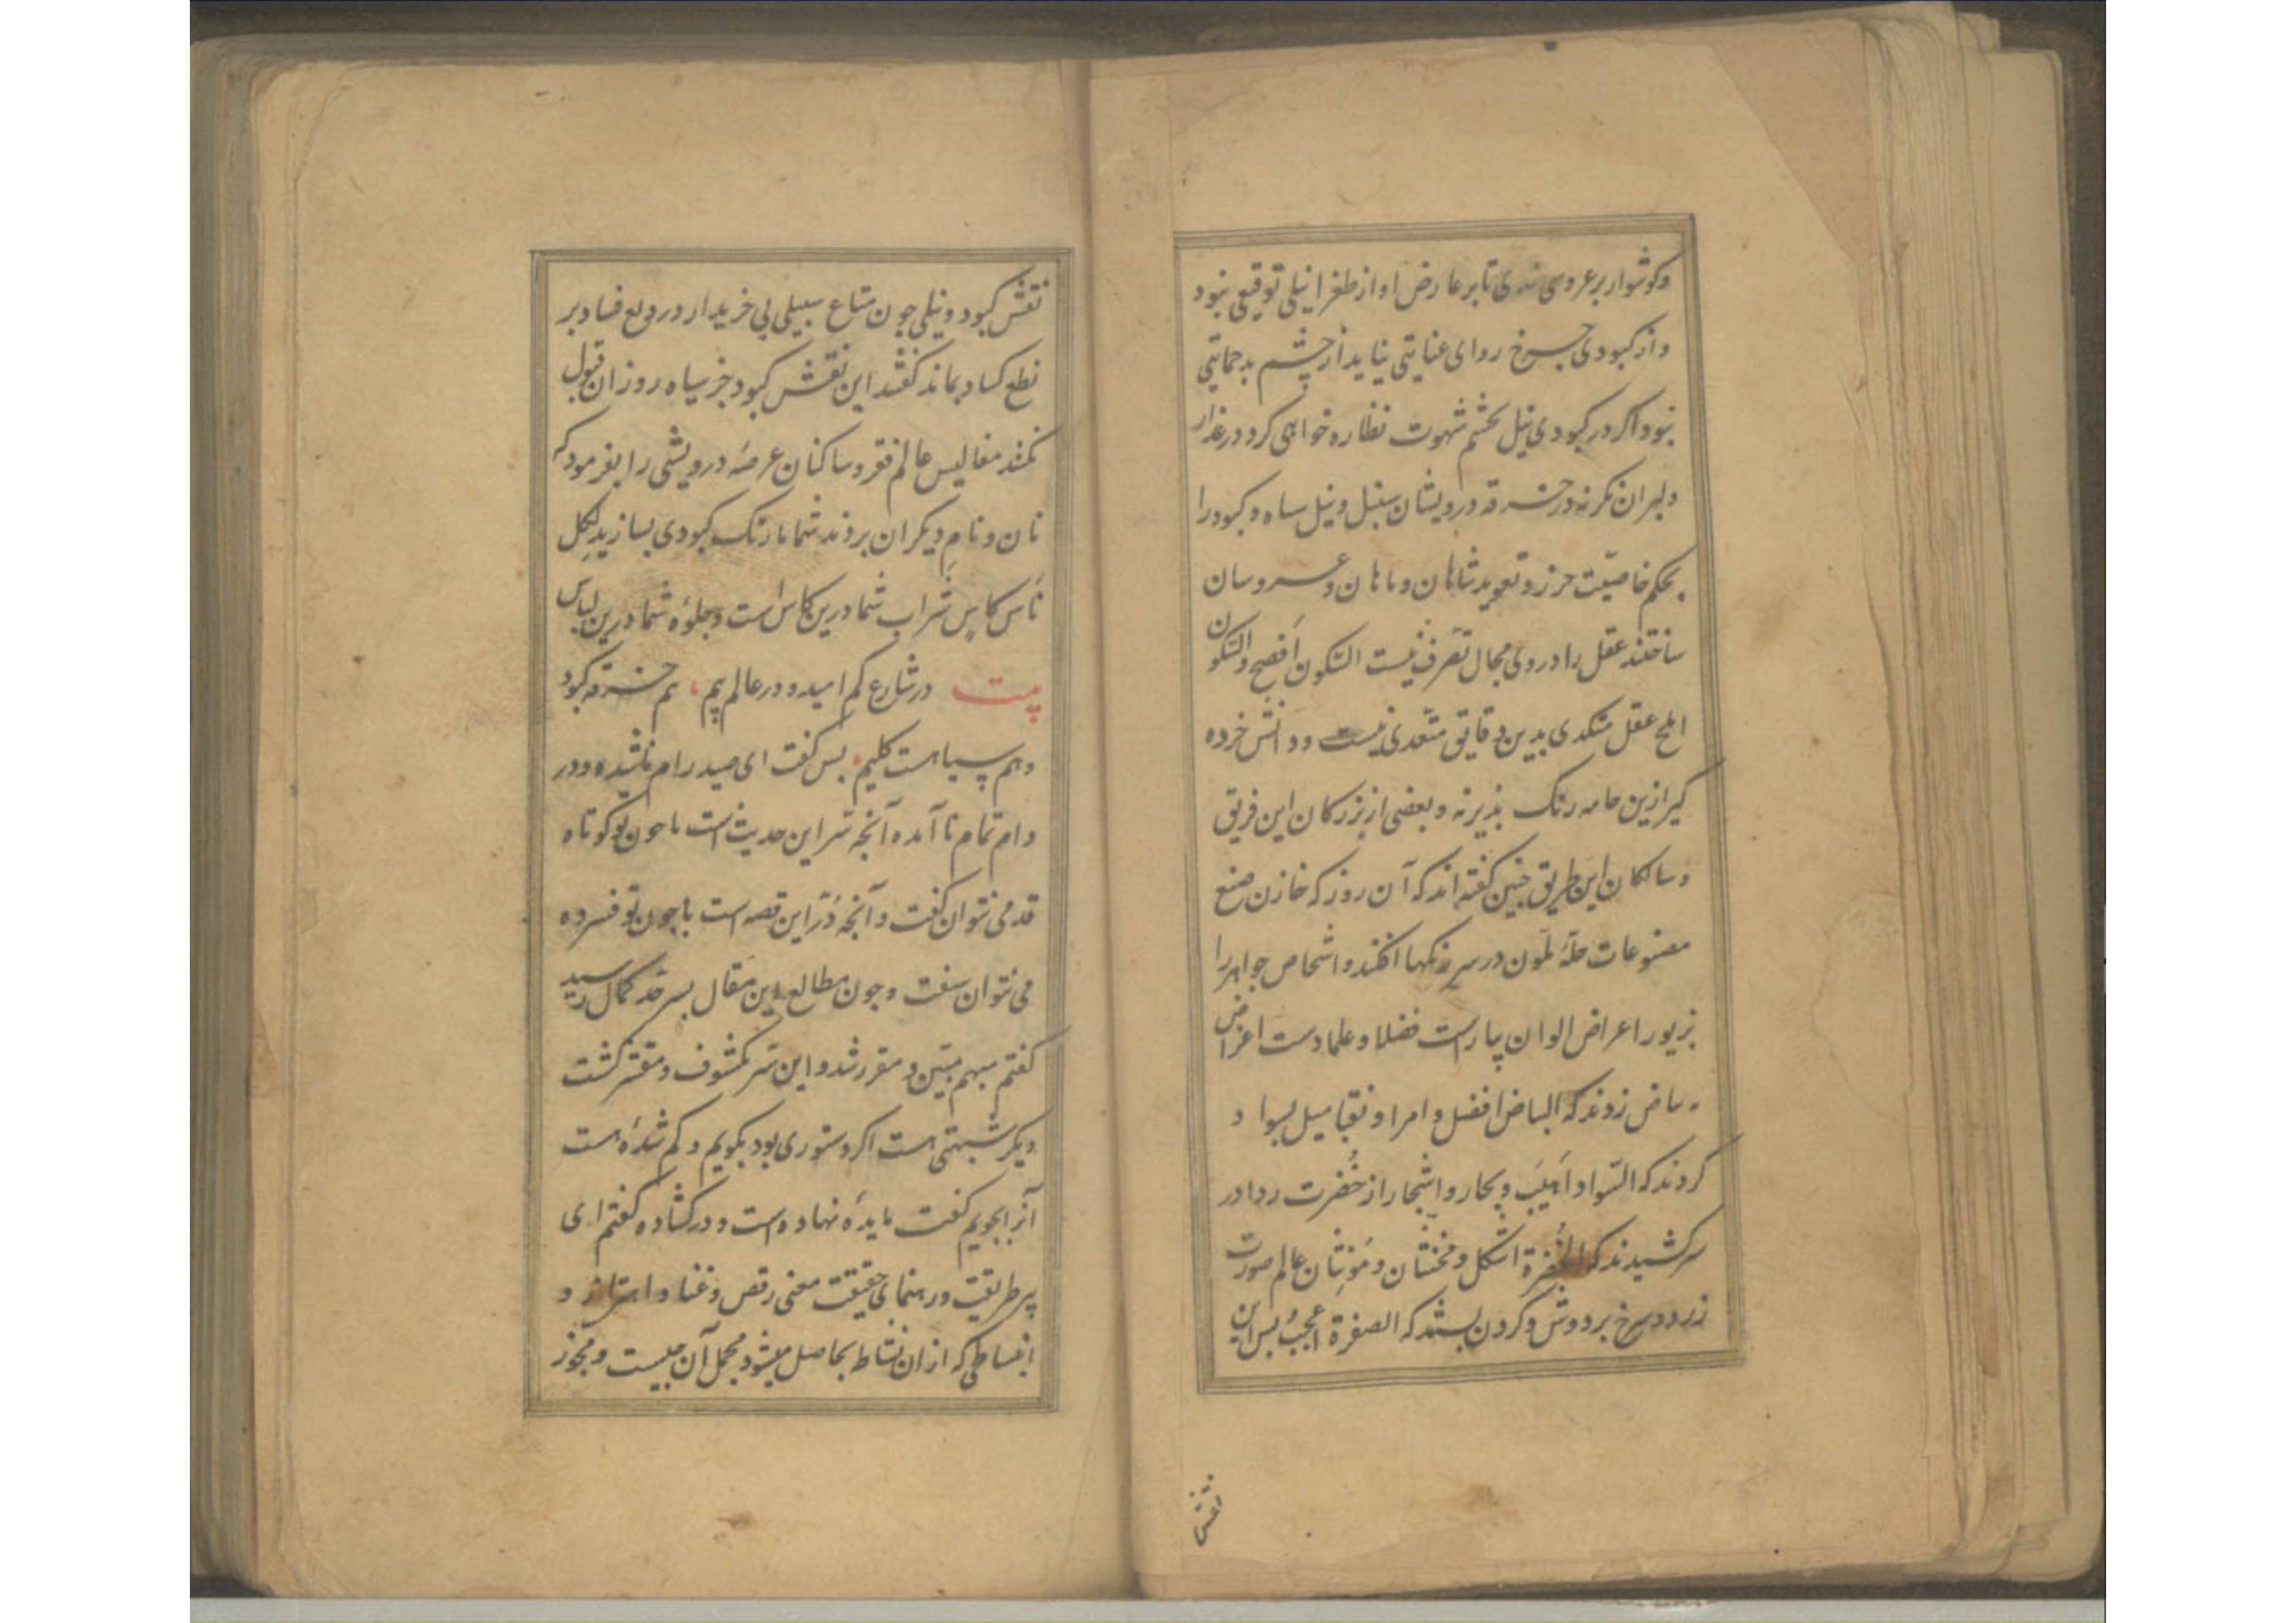 وکوشوار بر عروسی بندی تا بر عارض او از طغرا نیلی توقیعی نبود
و از کبودی چرخ ردای عنایتی نیاید از چشم بد حمایتی
نبود اکر در کبودی نیل بچشم شهوت نظاره خواهی کرد در عذار
دلبران نکر نه در خرقه درویشان سنبل و نیل سیاه و کبود را
بحکم خاصیت حرز و تعوید شاهان و ماهان و عروسان
ساختند عقل را در وی مجال تصرف نیست السکون افصح والسکون
املح عقل متکدی بدین دقایق متعدی نیست و دانش خرده
کیر ازین جامه رنک پذیر نه و بعضی از بزرکان این فریق
و سالکان این طریق چنین کفته اند که آن روز که خازن صنع
مصنوعات حلهٔ تلون در سر رنکها افکند و اشخاص جواهر را
بزیور اعراض الوان بیاراست فضلا و علما دست اعراض
بیاض زدند که البیاض افضل و امرا و نقبا میل بسواد
کردند که السّواد اهیب و بحار و اشجار از خُضرت ردا در
سر کشیدند که الخُضرة اشکل و مخنثان و مؤنثان عالم صورت
زرد و سرخ بر دوش و کردن بستند که الصفرة اعجبُ بس این
نقش
نقش کبود و نیلی چون متاع سبیلی بی خریدار در ربع فساد بر
نطع کساد بماند کفتند این نقش کبود جز سیاه روزان قبول
نکنند مفالیس عالم فقر و ساکنان عرصهٔ درویشی را بفرمود که
نان و نامِ دیکران بردند شما با رنک کبودی بسازید لکل
ناس کاس شراب شما درین کاس است و جلوهٔ شما درین لباس
بیت در شارع کم امید و در عالم بیم، هم خرقه کبود
و هم سیاهست کلیم، بس کفت ای صید رام ناشده و در
دام تمام نا آمده آنچه سر این حدیث است با چون تو کوتاه
قدمی نتوان کفت و آنچه دُرّ این قصه است با چون تو فسرده
می نتوان سفت و چون مطالع این مقال بسر حد کمال رسید
کفتم مبهم مبیّن و مقرر شد و این سّر مکشوف و مفسّر کشت
دیکر شبهتی هست اکر دستوری بود بکویم و کم شدهٔ هست
آنرا بجویم کفت مایدهٔ نهاده است و در کشاده کفتم ای
پیر طریقت و رهنمای حقیقت معنی رقص و غنا و اهتزاز و
انبساطی که از ان نشاط بحاصل میشود مجمل آن چیست و مجوز